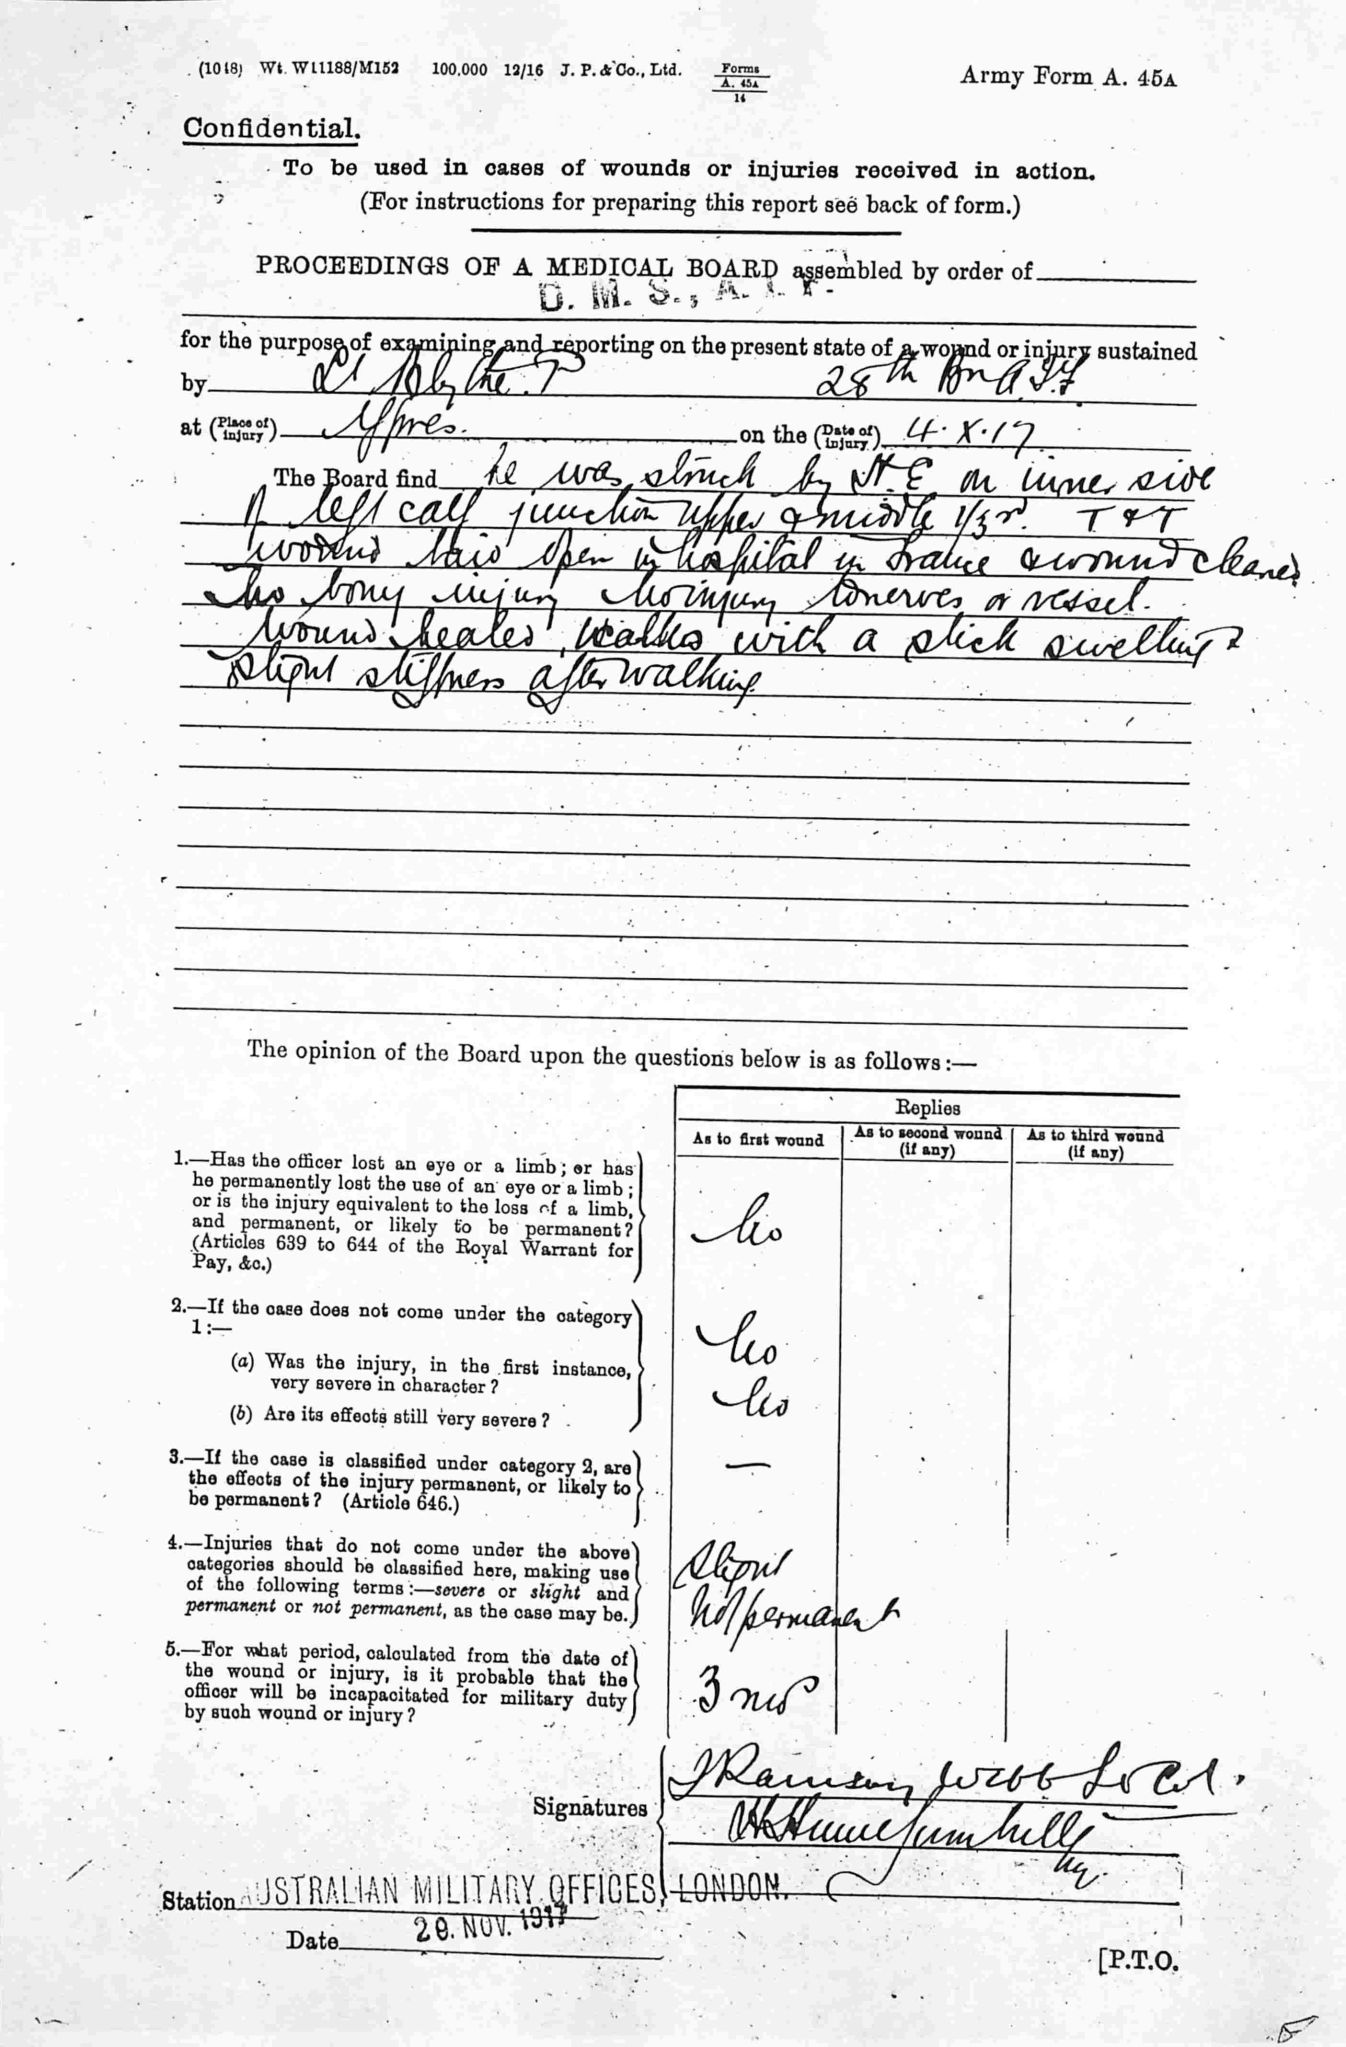 (1018) Wt. W11188/M152 100,000 12/16 J. P. & Co., Ltd. Forms A. 45A 14
Army Form A. 45A
Confidential.
To be used in cases of wounds or injuries received in action.
(For instructions for preparing this report see back of form.)
PROCEEDINGS OF A MEDICAL BOARD assembled by order of
D. M. S., A. I. F.
for the purpose of examining and reporting on the present state of a wound or injury sustained
by Lt Blythe. T 28th Bn A.I.F.
at (Place of injury) Ypres. on the (Date of injury) 4.X.17
The Board find he was struck by H.E on inner side
of left calf junction upper & middle 1/3rd. T & T
wound laid open in hospital in France & wound cleaned
No bony injury No injury to nerves or vessel.
Wound healed, walks with a stick swelling &
slight stiffness after walking
The opinion of the Board upon the questions below is as follows:—
Replies
As to first wound
As to second wound (if any)
As to third wound (if any)
1.—Has the officer lost an eye or a limb; or has
he permanently lost the use of an eye or a limb;
or is the injury equivalent to the loss of a limb,
and permanent, or likely to be permanent?
(Articles 639 to 644 of the Royal Warrant for
Pay, &c.)
No
2.—If the case does not come under the category
1:—
(a) Was the injury, in the first instance,
very severe in character?
No
(b) Are its effects still very severe?
No
3.—If the case is classified under category 2, are
the effects of the injury permanent, or likely to
be permanent? (Article 646.)
—
4.—Injuries that do not come under the above
categories should be classified here, making use
of the following terms:—severe or slight and
permanent or not permanent, as the case may be.
Slight
Not permanent
5.—For what period, calculated from the date of
the wound or injury, is it probable that the
officer will be incapacitated for military duty
by such wound or injury?
3 mos
Signatures
Webb Lt Col.
Station AUSTRALIAN MILITARY OFFICES, LONDON.
Date 29. NOV. 1917
[P.T.O.